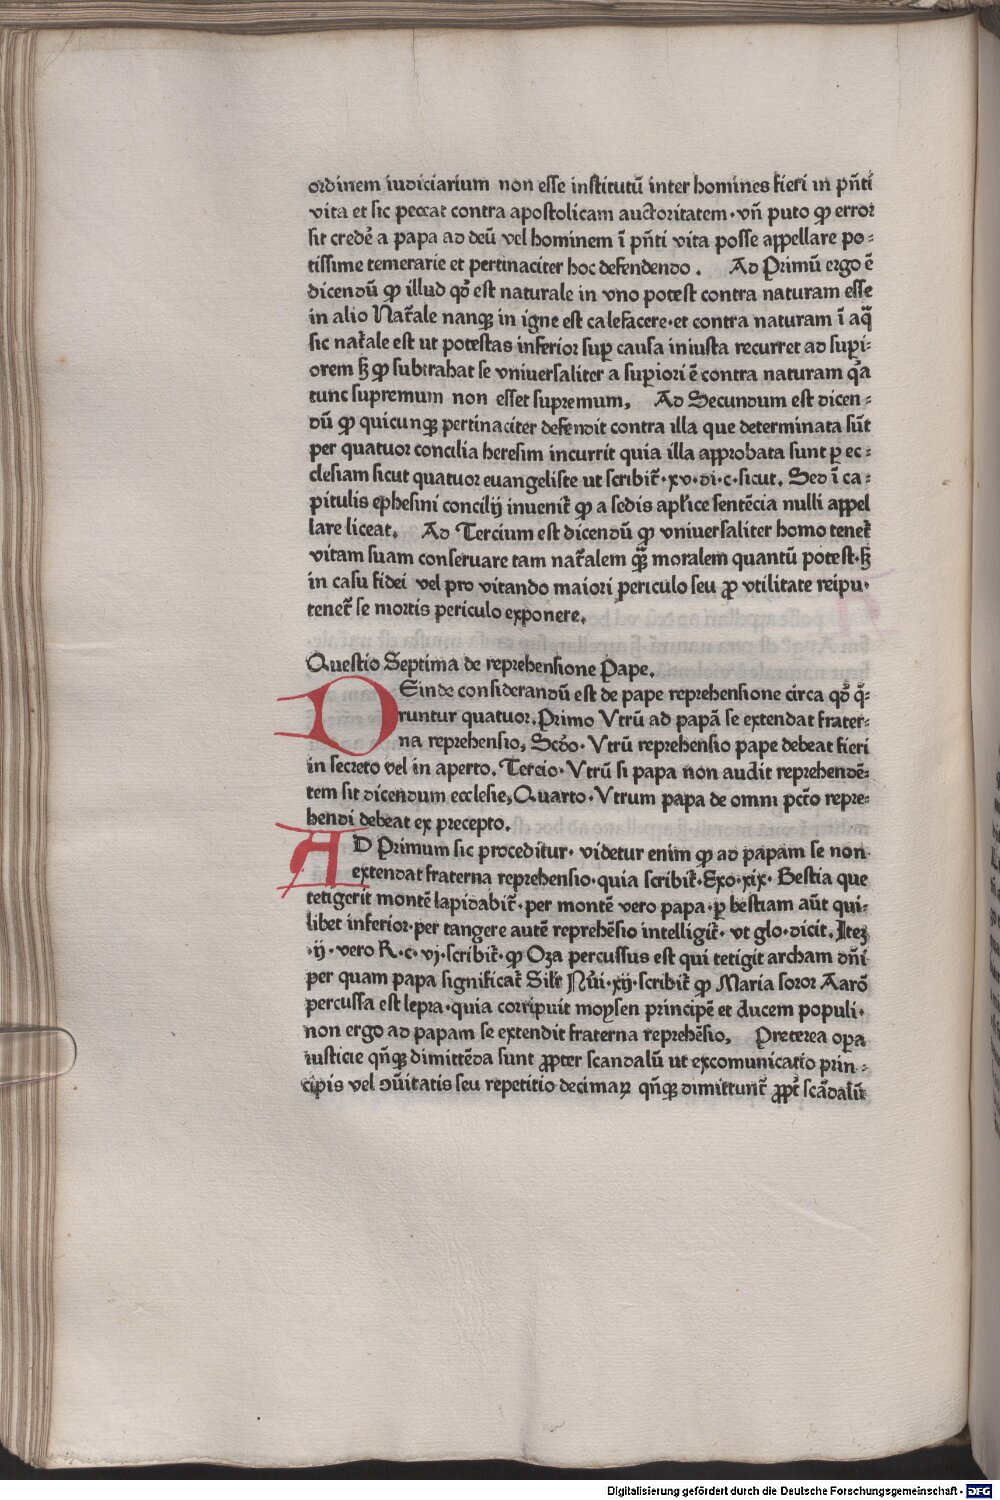 ordinem iudiciarium non esse institutū inter homines fieri in pn̄ti
vita et sic peccat contra apostolicam auctoritatem·vn̄ puto ꝙ error
sit credẽ a papa ad deū vel hominem ī pn̄ti vita posse appellare po⸗
tissime temerarie et pertinaciter hoc defendendo. Ad Primū ergo ē
dicendū ꝙ illud qd̄ est naturale in vno potest contra naturam esse
in alio Nat̄ale nanqꝫ in igne est calefacere·et contra naturam ī aq̄
sic nat̄ale est ut potestas inferior sup̱ causa iniusta recurret ad sup̱i⸗
orem hꝫ ꝙ subtrahat se vniuersaliter a sup̱iori ē contra naturam qꝛ̄a
tunc supremum non esset supremum, Ad Secundum est dicen⸗
dū ꝙ quicunqꝫ pertinaciter defendit contra illa que determinata sūt
per quatuor concilia heresim incurrit quia illa approbata sunt p̱ ec⸗
clesiam sicut quatuor euangeliste ut scribit̄·xv·di·c·sicut. Sed ī ca⸗
pitulis ephesini concilij inuenit̄ ꝙ a sedis apl̄ice sentēcia nulli appel
lare liceat. Ad Tercium est dicendū ꝙ vniuersaliter homo tenet̄
vitam suam conseruare tam nat̄alem qꝫ̄ moralem quantū potest·sꝫ
in casu fidei vel pro vitando maiori periculo seu ꝓ vtilitate reipu·
tenet̄ se mortis periculo exponere.
Questio Septima de reprehensione Pape.
DEinde considerandū est de pape reprehensione circa qd̄ q̄⸗
runtur quatuor. Primo Vtrū ad papā se extendat frater⸗
na reprehensio, Scd̄o·Vtrū reprehensio pape debeat fieri
in secreto vel in aperto. Tercio·Vtrū si papa non audit reprehendē⸗
tem sit dicendum ecclesie, Quarto·Vtrum papa de omni pct̄o repre⸗
hendi debeat ex precepto.
AD Primum sic proceditur· videtur enim ꝙ ad papam se non
extendat fraterna reprehensio·quia scribit̄·Exo·xix· Bestia que
tetigerit montē lapidabit̄·per montē vero papa·p̱ bestiam aūt qui⸗
libet inferior·per tangere autē reprehēsio intelligit̄· vt glo·dicit. Iteꝫ
·ij·vero R·c·vj·scribit̄·ꝙ Oza percussus est qui tetigit archam dn̄i
per quam papa significat̄ Sil̄r Nūi·xij·scribit̄ ꝙ Maria soror Aarō
percussa est lepra·quia corripuit moysen principē et ducem populi·
non ergo ad papam se extendit fraterna reprehēsio, Preterea op̱a
iusticie qn̄qꝫ dimittēda sunt ꝓpter scandalū ut excomunicatio prin⸗
cipis vel ꝯūitatis seu repetitio decimaꝝ qn̄qꝫ dimittunt̄ ꝓpt̄ scādalū
Digitalisierung gefördert durch die Deutsche Forschungsgemeinschaft - DFG